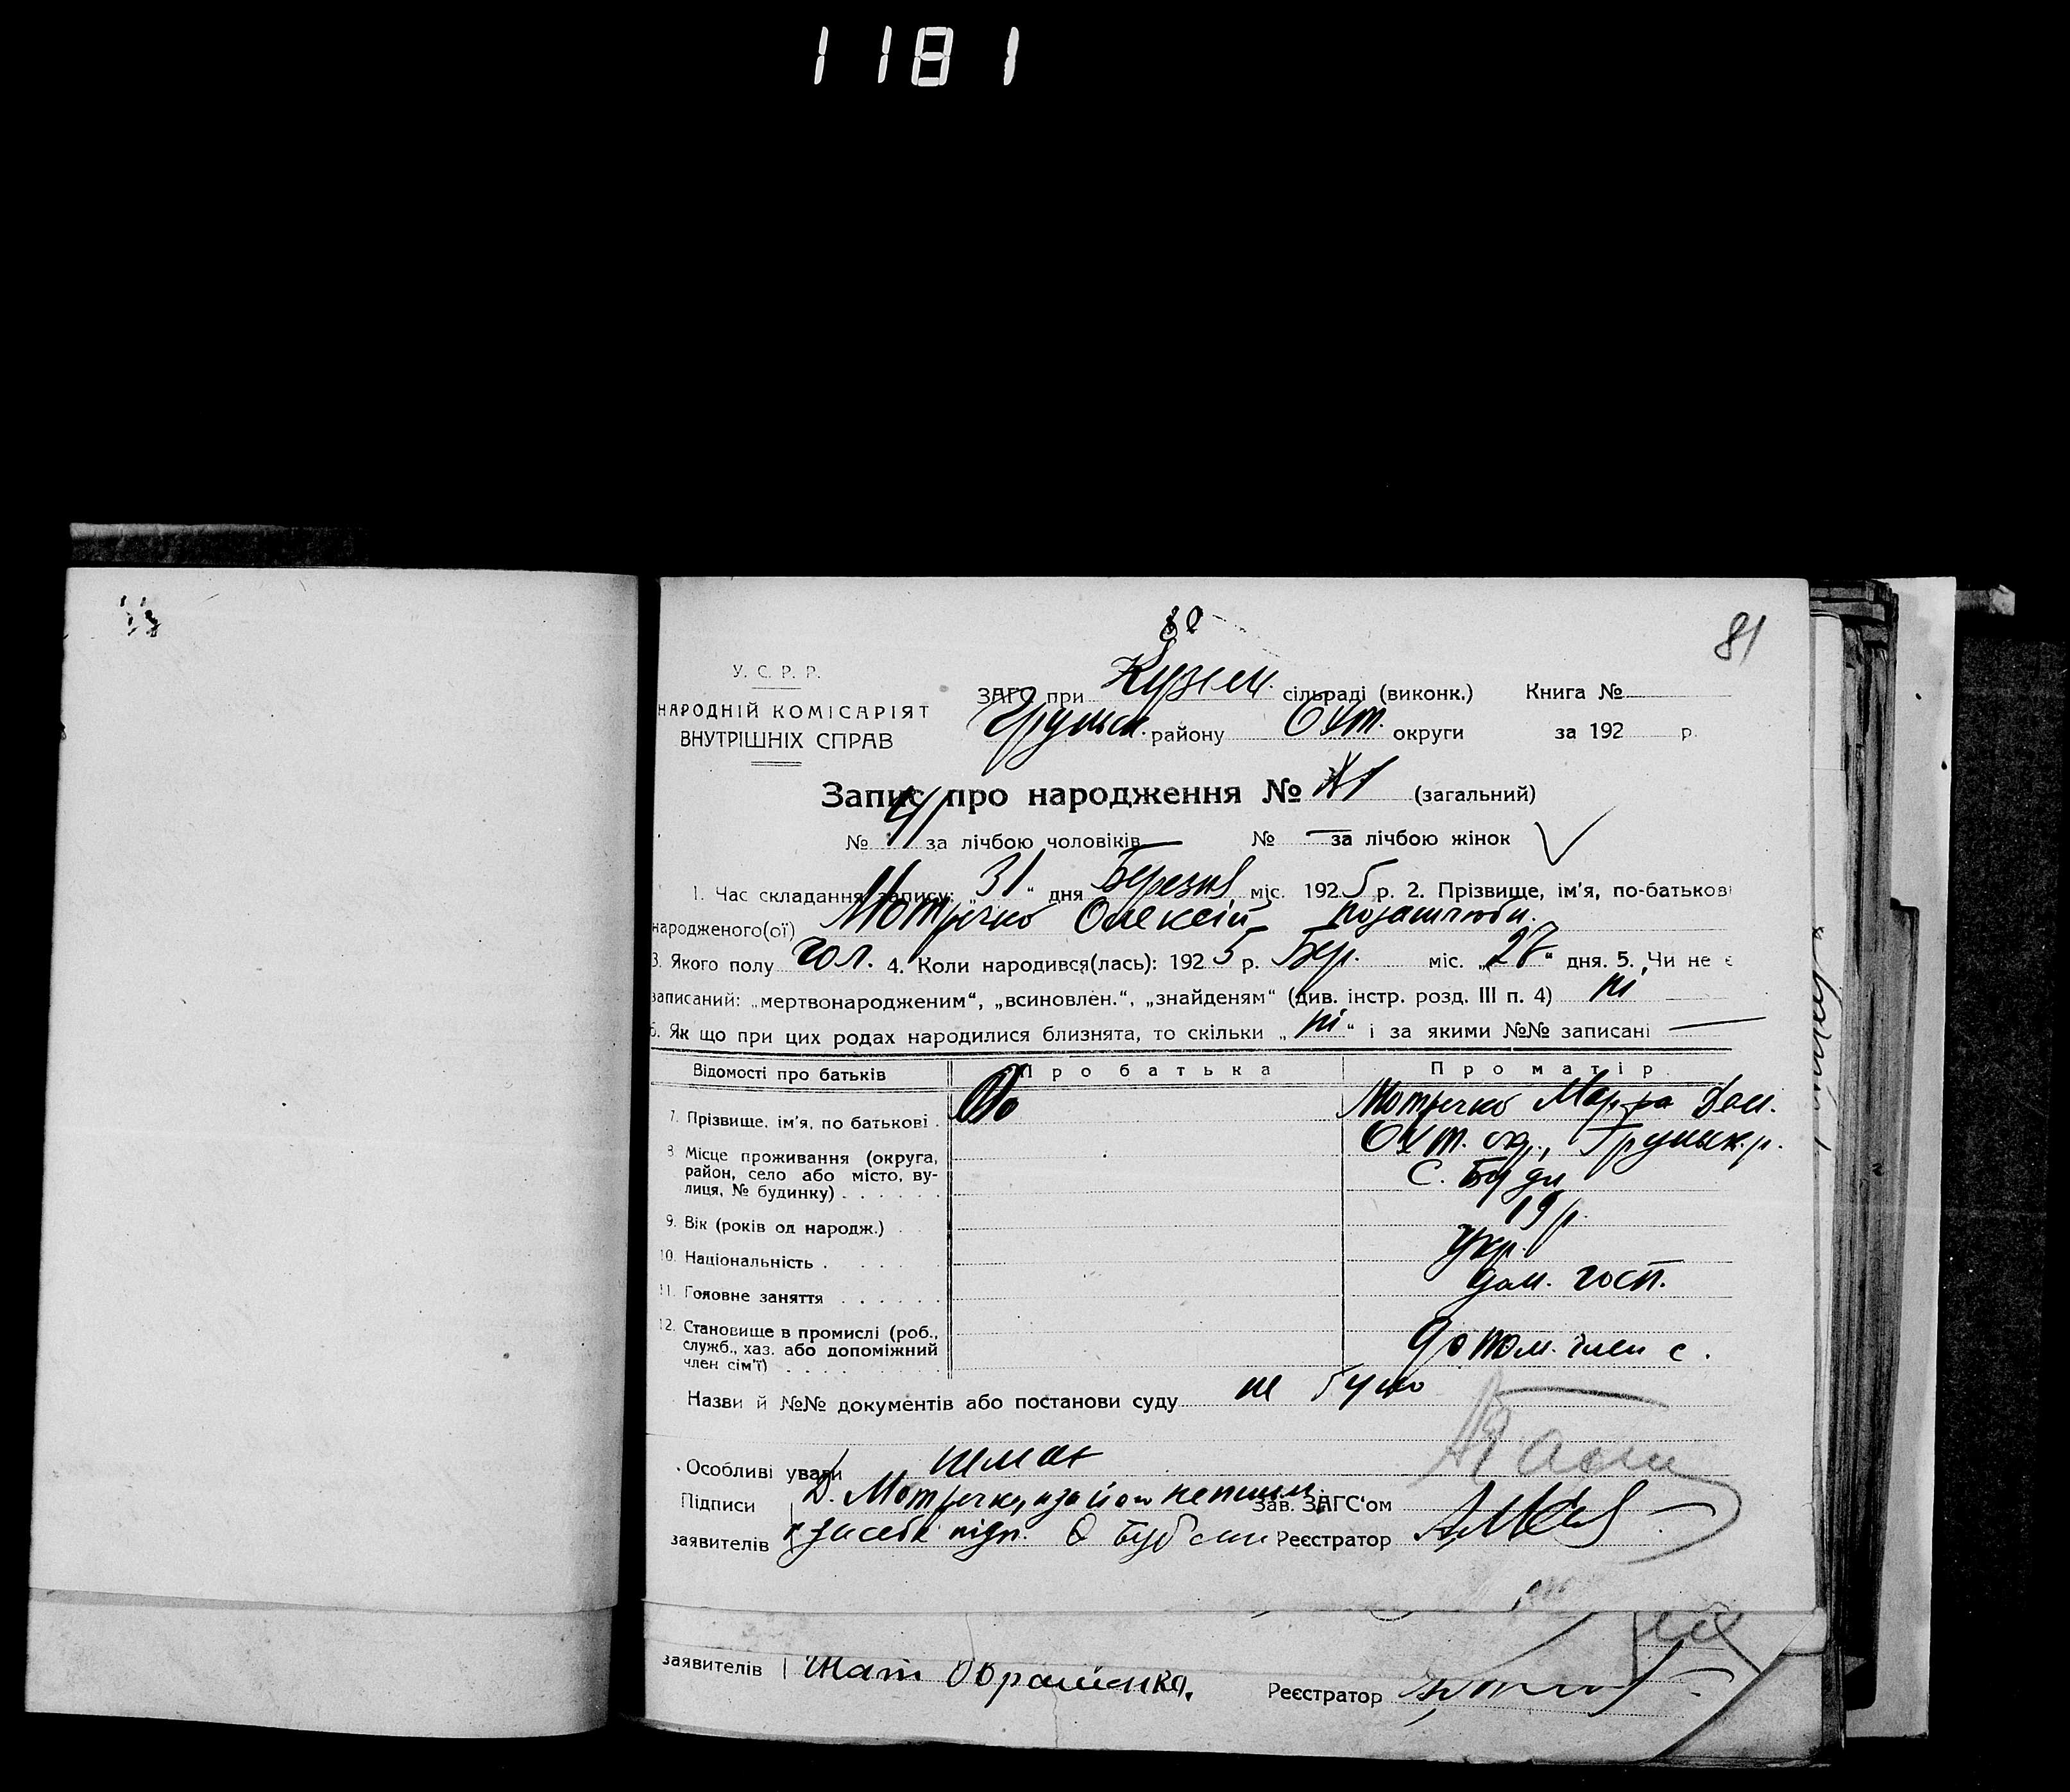 1181
81
У. С. Р. Р.
НАРОДНІЙ КОМІСАРІЯТ
ВНУТРІШНІХ СПРАВ
ЗАГС при Кузем. сільраді (виконк.) Книга №
Грунськ. району Охт. округи за 192 р.
Запис про народження № (загальний)
№ за лічбою чоловіків № — за лічбою жінок
1. Час складання запису: „31“ дня Березня міс. 1925 р. 2. Прізвище, ім'я, по-батькові
народженого(ої) Мотречко Олексій позашлюбн.
3. Якого полу чол. 4. Коли народився(лась): 1925 р. Бер. міс. „27“ дня. 5. Чи не є
записаний: „мертвонародженим“, „всиновлен.“, „знайденям“ (див. інстр. розд. III п. 4) ні
6. Як що при цих родах народилися близнята, то скільки „ні“ і за якими №№ записані —
Відомості про батьків Про батька Про матір
7. Прізвище, ім'я, по батькові Мотречко Марфа Дем.
8. Місце проживання (округа, Охт. ок., Грунськ. р.
район, село або місто, ву- С. Буди
лиця, № будинку)
9. Вік (років од народж.) 19 р.
10. Національність Укр.
11. Головне заняття дом. госп.
12. Становище в промислі (роб.,
служб., хаз. або допоміжний допом. член с.
член сім'ї)
Назви й №№ документів або постанови суду не було
Особливі уваги немає
Підписи Д. Мотречко, а за його неписьм. Зав. ЗАГС'ом
заявителів за себе підп. Реєстратор
заявителів Реєстратор